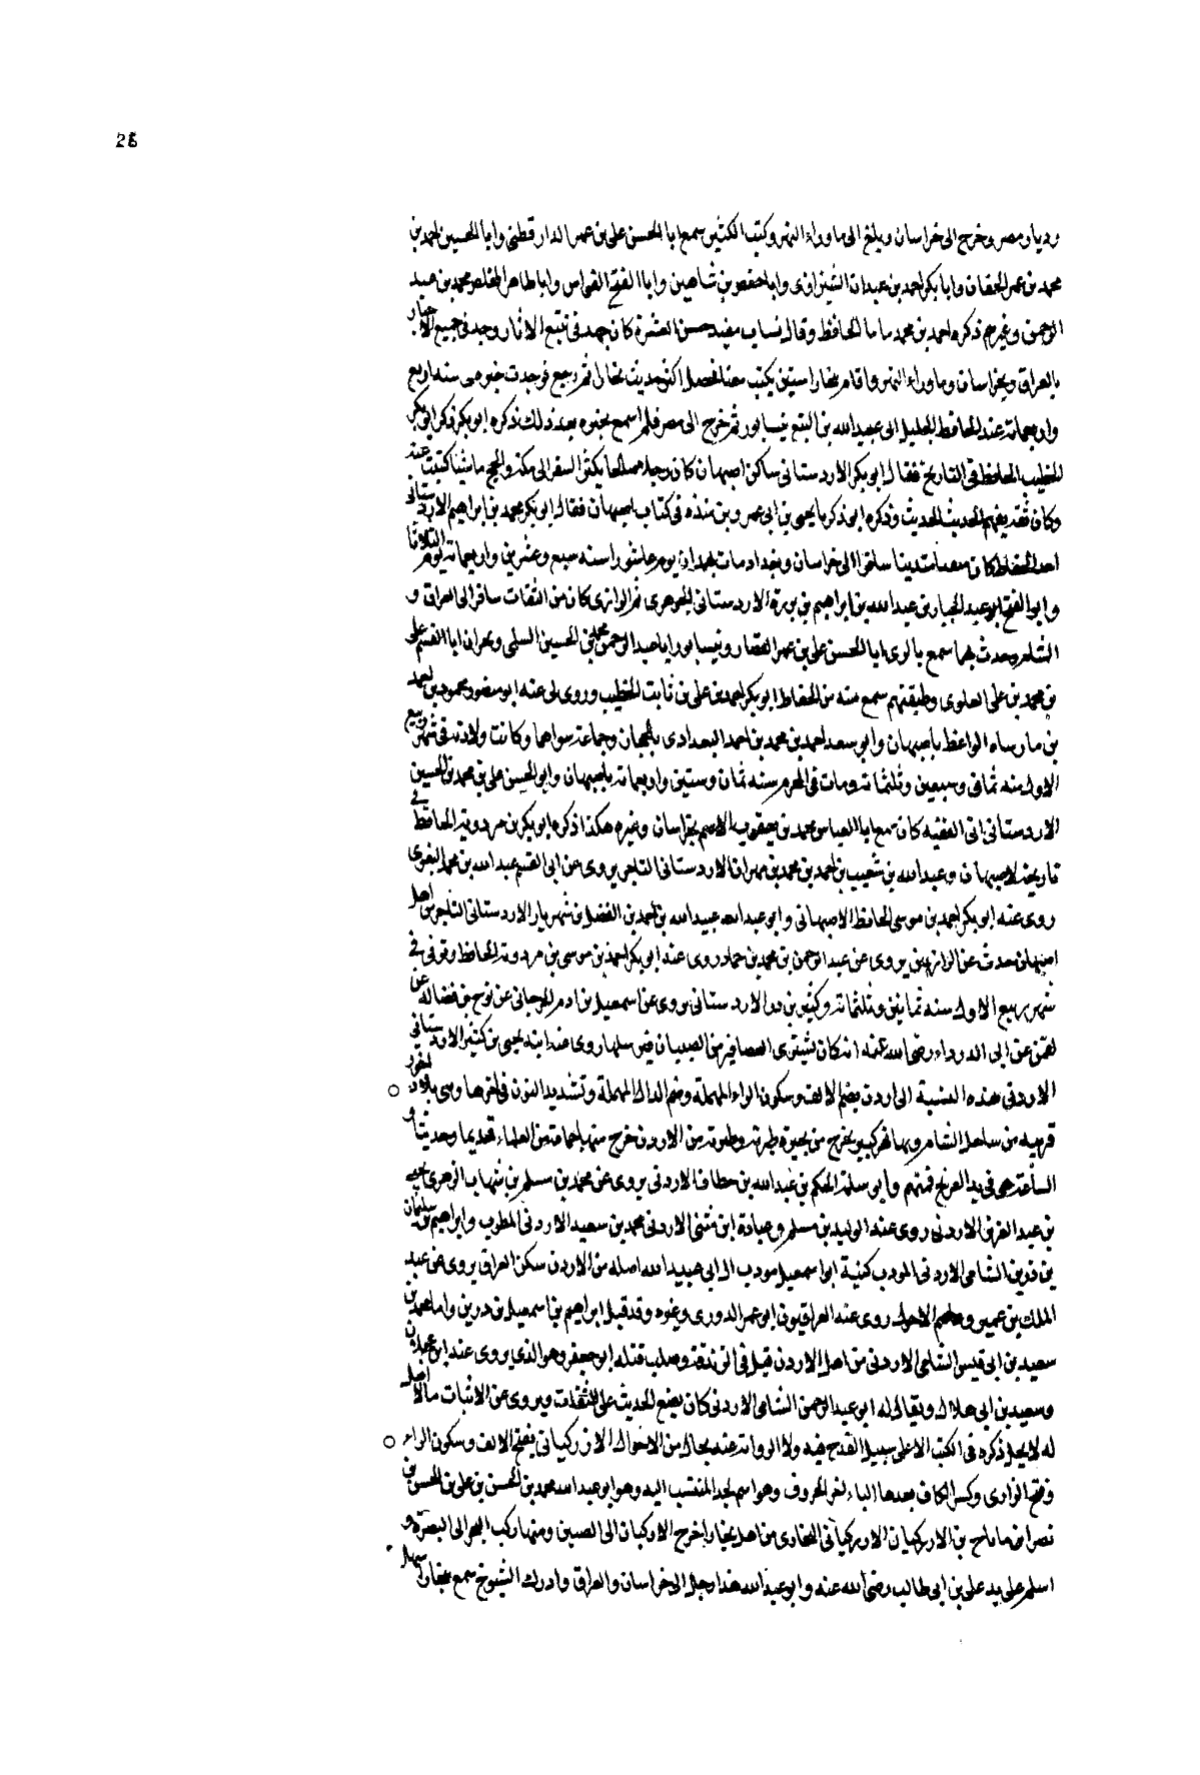 26
وديار مصر وخرج الى خراسان وبلغ الى ماوراء النهر وكتب الكثير سمع ابا الحسن على بن عمر الدارقطنى وابا الحسين احمد بن
محمد بن عمر الخفاف وابا بكر احمد بن عبدان الشيرازى وابا حفص بن شاهين وابا الفتح القواس وابا طاهر المخلص محمد بن عبد
الرحمن وغيرهم ذكره احمد بن محمد ماما الحافظ وقال شاب مفيد حسن العشرة كان جهد فى تتبع الاثار وجد فى جميع الاخبار
بالعراق وبخراسان وماوراء النهر واقام ببخارا سنتين يكتب معنا فحصل اكثر حديث بخارا ثم رجع فوجدت خبره فى سنه اربع
واربعماية عند الحافظ الجليل ابى عبد الله بن البيع نيسابور ثم خرج الى مصر فلم اسمع بخبره بعد ذلك ذكره ابو بكر
الخطيب الحافظ فى التاريخ فقال ابو بكر الاردستانى ساكن اصبهان كان رجلا صالحا يكثر السفر الى مكة والحج ماشيا كتبت عنه
وكان ثقة يفهم الحديث وذكره ابو زكريا يحيى بن ابى عمرو بن منده فى كتاب اصبهان فقال ابو بكر محمد بن ابراهيم الاردستانى
احد الحفاظ كان متدينا سافر الى خراسان وبغداد مات بهمدان يوم عاشورا سنه سبع وعشرين واربعماية يوم الثلاثا
وابو الفتح عبد الجبار بن عبد الله بن ابراهيم بن برزة الاردستانى الجوهرى ثم الرازى كان من الثقات سافر الى العراق و
الشام وحدث بها سمع بالرى ابا الحسن على بن عمر القصار ونيسابور ابا عبد الرحمن محمد بن الحسين السلمى وبحران ابا القسم على
بن محمد بن على العلوى وطبقتهم سمع منه من الحفاظ ابو بكر احمد بن على بن ثابت الخطيب وروى لى عنه ابو منصور محمود بن احمد
بن ماشاه الواعظ باصبهان وابو سعد احمد بن محمد بن احمد البغدادى وجماعة سواهما وكانت ولادته فى شهر ربيع
الاول سنه ثمانى وسبعين وثلثماية ومات فى المحرم سنه ثمان وستين واربعماية باصبهان وابو الحسن على بن محمد بن الحسين
الاردستانى الفقيه كان سمع ابا العباس محمد بن يعقوب الاصم بخراسان وغيره هكذا ذكره ابو بكر بن مردويه الحافظ فى
تاريخه لاصبهان وعبد الله بن شعيب بن احمد بن محمد بن مهران الاردستانى التاجر يروى عن ابى القسم عبد الله بن محمد البغوى
روى عنه ابو بكر احمد بن موسى الحافظ الاصبهانى وابو عبد الله عبيد الله بن احمد بن الفضل بن شهريار الاردستانى التاجر من اهل
اصبهان حدث عن الرازيين يروى عن عبد الرحمن بن محمد بن حماد روى عنه ابو بكر احمد بن موسى بن مردويه الحافظ وتوفى فى
شهر ربيع الاول سنه ثمانين وثلثماية وكثير بن الاردستانى يروى عن اسمعيل بن ادم الجرجانى عن نوح بن فضاله عن
لقمن عن ابى الدرداء رضى الله عنه انه كان يشترى العصافير من الصبيان فيرسلها روى عنه ابنه يحيى بن كثير الاردستانى
الاردنى هذه النسبة الى اردن بضم الالف وسكون الراء المهملة وضم الدال المهملة وتشديد النون فى اخرها وهى بلاد الغور
قريبه من ساحل الشام وبها نهر كبير يخرج من بحيرة طبرية وطبرية من الاردن خرج منها جماعة من العلماء قديما وحديثا و
الساعة هى فى يد الفرنج فمنهم وابو سلمة الحكم بن عبد الله بن خطاف الاردنى يروى عن محمد بن مسلم بن شهاب الزهرى يحيى
بن عبد العزيز الاردنى روى عنه الوليد بن مسلم وعبادة ابن نسى الاردنى محمد بن سعيد الاردنى المصلوب وابراهيم بن سليمان
بن رزين الشامى الاردنى المودب كنية ابو اسمعيل مودب ال ابى عبيد الله اصله من الاردن سكن العراق يروى عن عبد
الملك بن عمير وعاصم الاحول روى عنه العراقيون ابو عمر الدورى وغيره وقد قيل ابراهيم بن اسمعيل بن رزين واما محمد بن
سعيد بن ابى قيس الشامى الاردنى من اهل الاردن قيل فى الزندقة وصلب قتله ابو جعفر وهو الذى يروى عنه ابن عجلان
وسعيد بن ابى هلال ويقال له ابو عبد الرحمن الشامى الاردنى كان يضع الحديث على الثقات ويروى عن الاثبات مالا اصل
له لا يحل ذكره فى الكتب الا على سبيل القدح فيه ولا الرواية عنه بحال من الاحوال الازركيانى بفتح الالف وسكون الراء
وفتح الزاى وكسر الكاف بعدها الياء اخر الحروف وهو اسم لجد المنتسب اليه وهو ابو عبد الله محمد بن الحسن بن على بن الحسن بن
نصر بن ماماح بن الازركيان الازركيانى البخارى من اهل بخارا خرج الازركيان الى الصين ومنها ركب البحر الى البصرة و
اسلم على يد على بن ابى طالب رضى الله عنه وابو عبد الله هذا رحل الى خراسان والعراق وادرك الشيوخ سمع ببخارا سهل